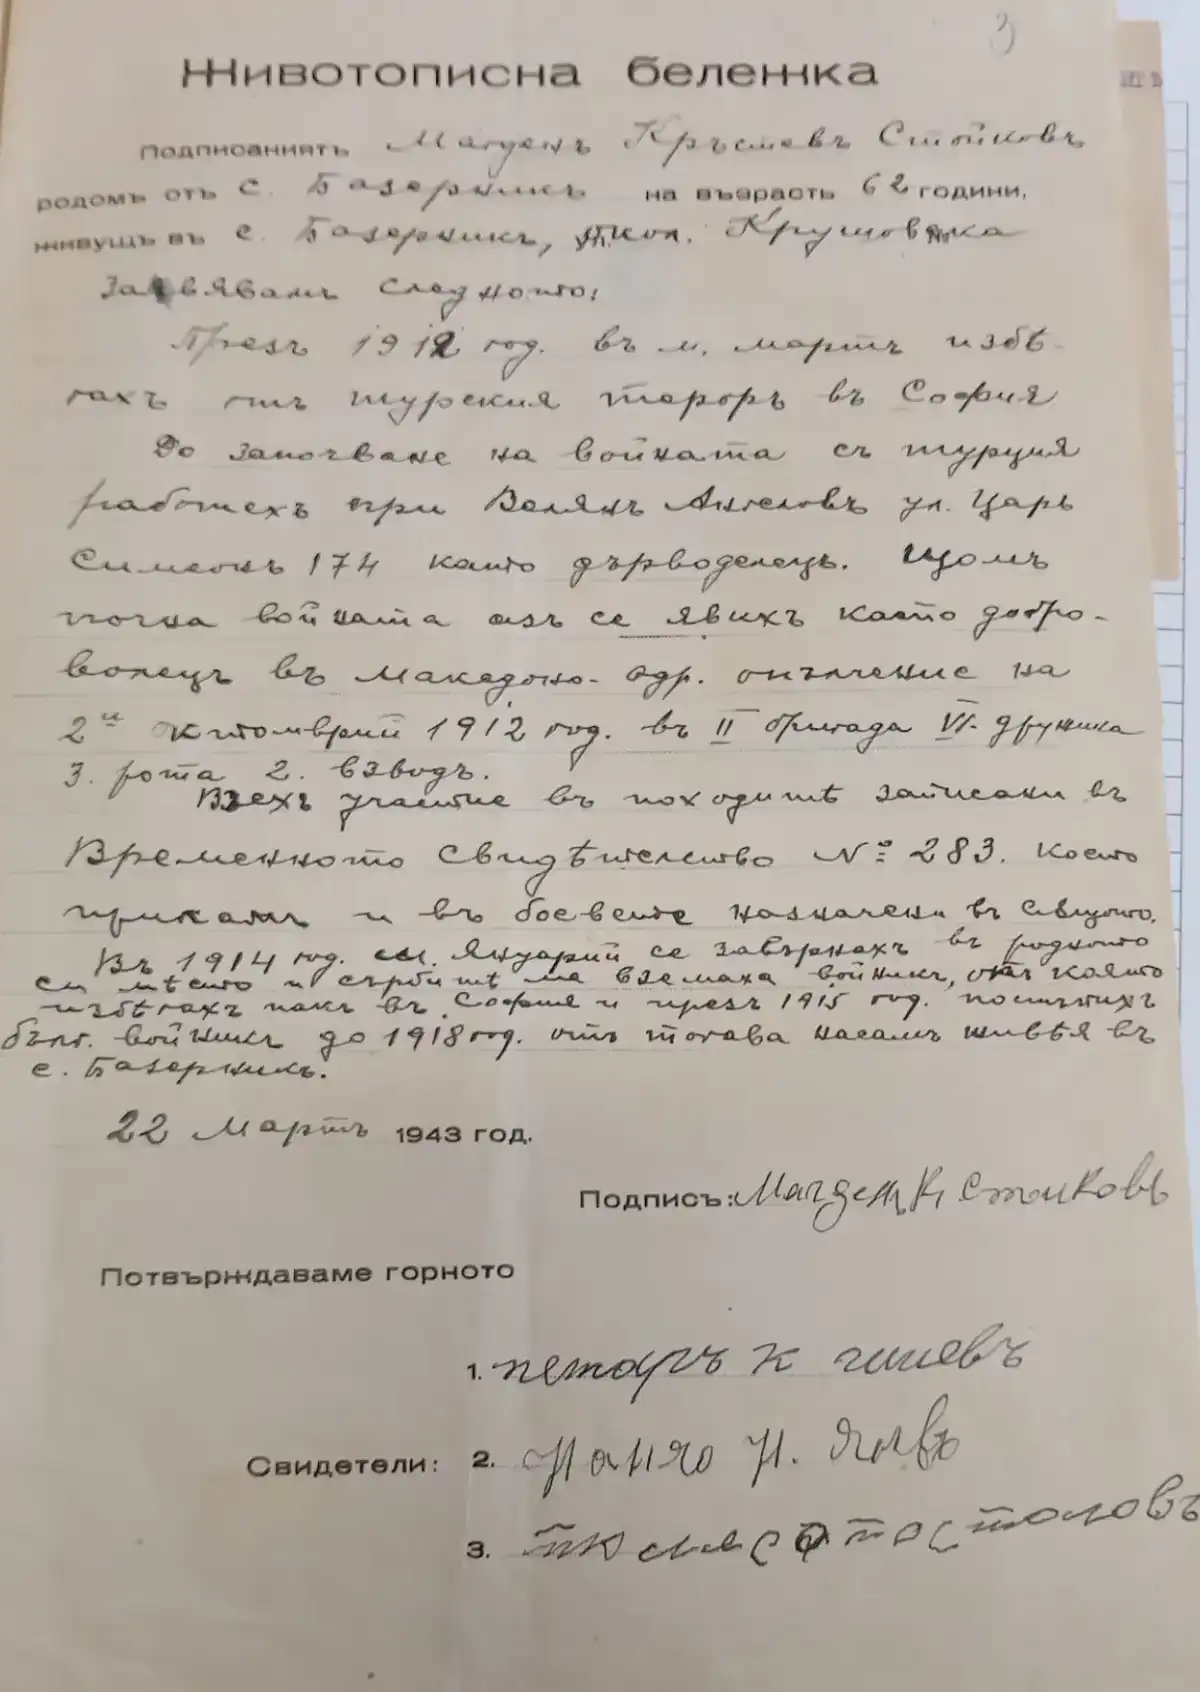 3
Животописна бележка
Подписаниятъ Магденъ Кръстевъ Стойковъ
родомъ отъ с. Базерникъ на възрасть 62 години,
живущъ въ с. Базерникъ, окол. Крушовска
Заявявамъ следното:
Презъ 1912 год. въ м. мартъ избѣ-
гахъ отъ турския тероръ въ София
До започване на войната съ турция
работехъ при Велянъ Ангеловъ ул. Царь
Симеонъ 174 като дърводелецъ. Щомъ
почна войната азъ се явихъ като добро-
волецъ въ Македоно-одр. опълчение на
2и октомврий 1912 год. въ II бригада VI. дружина
3. рота 2. взводъ.
Взехъ участие въ походитѣ записани въ
Временното свидѣтелство № 283. което
прилагамъ и въ боевете назначени въ сѫщото.
Въ 1914 год. м. Януарий се завърнахъ въ родното
си мѣсто и сърбитѣ ме вземаха войникъ, отъ която
избѣгахъ пакъ въ София и презъ 1915 год. постъпихъ
бълг. войникъ до 1918 год. отъ тогава насамъ живѣя въ
с. Базерникъ.
22 Мартъ 1943 год.
Подписъ: Магденъ К. Стоиковъ
Потвърждаваме горното
1. петаръ к
Свидетели: 2. Нанчо Н.
3. апостоловъ